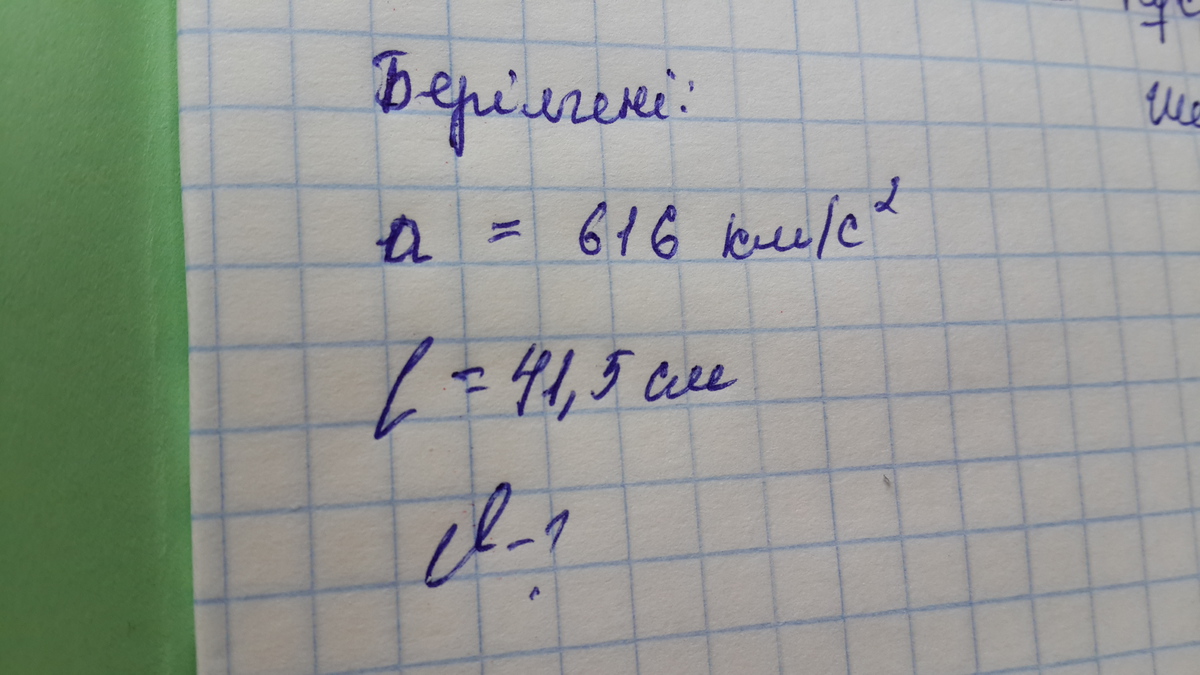 Берілгені:
a = 616 км/с²
l = 41,5 см
υ-?